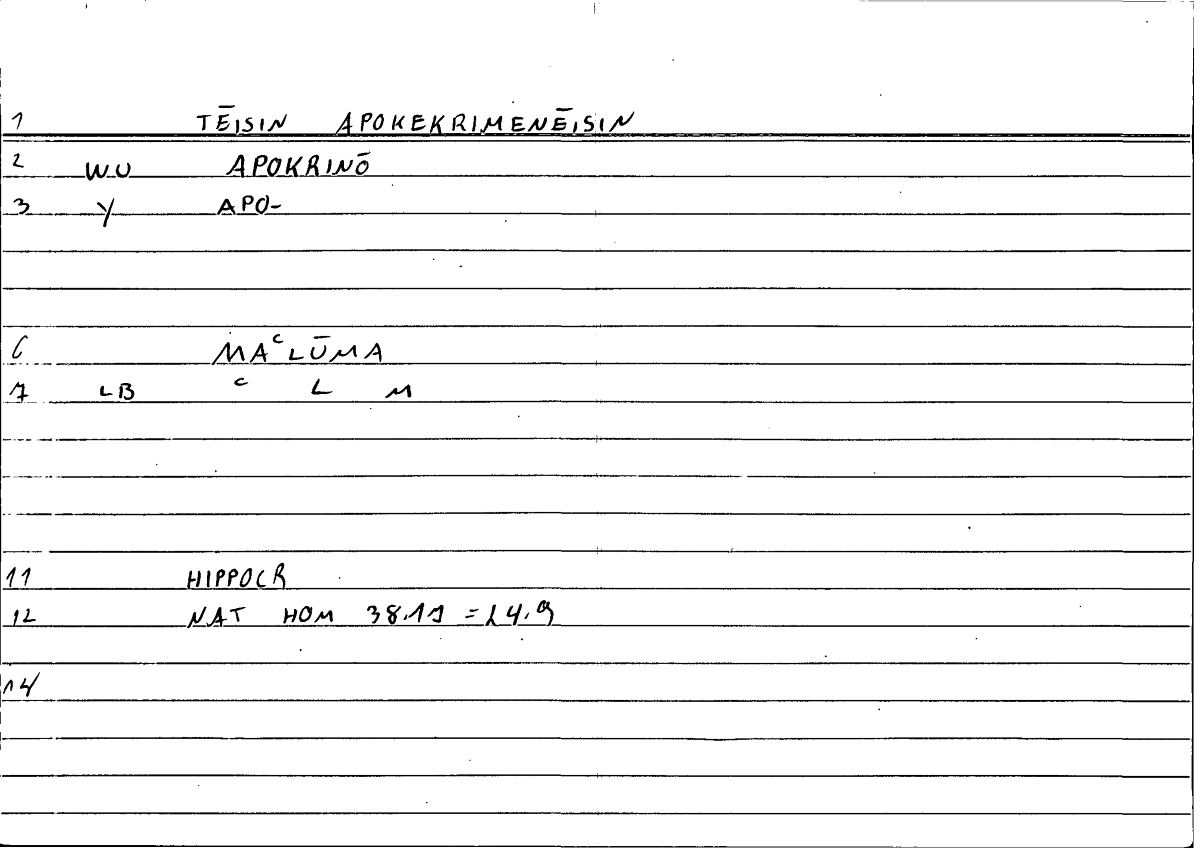 1 TĒISIN APOKEKRIMENĒISIN
2 WU APOKRINŌ
3 Y APO-
6 MAᶜLŪMA
7 LB ᶜ L M
11 HIPPOCR
12 NAT HOM
14